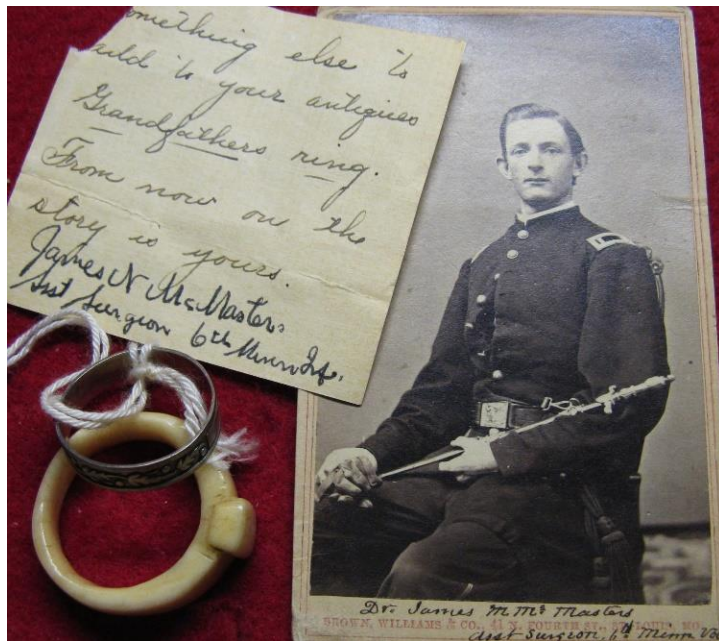 omething else to
add to your antiques
Grandfathers ring.
From now on the
story is yours.
James N McMasters
Asst Surgeon 6th Minn Inf.
Dr. James M McMasters
BROWN, WILLIAMS & CO., 41 N. FOURTH ST., ST. LOUIS, MO.
Asst Surgeon, 6th Minn